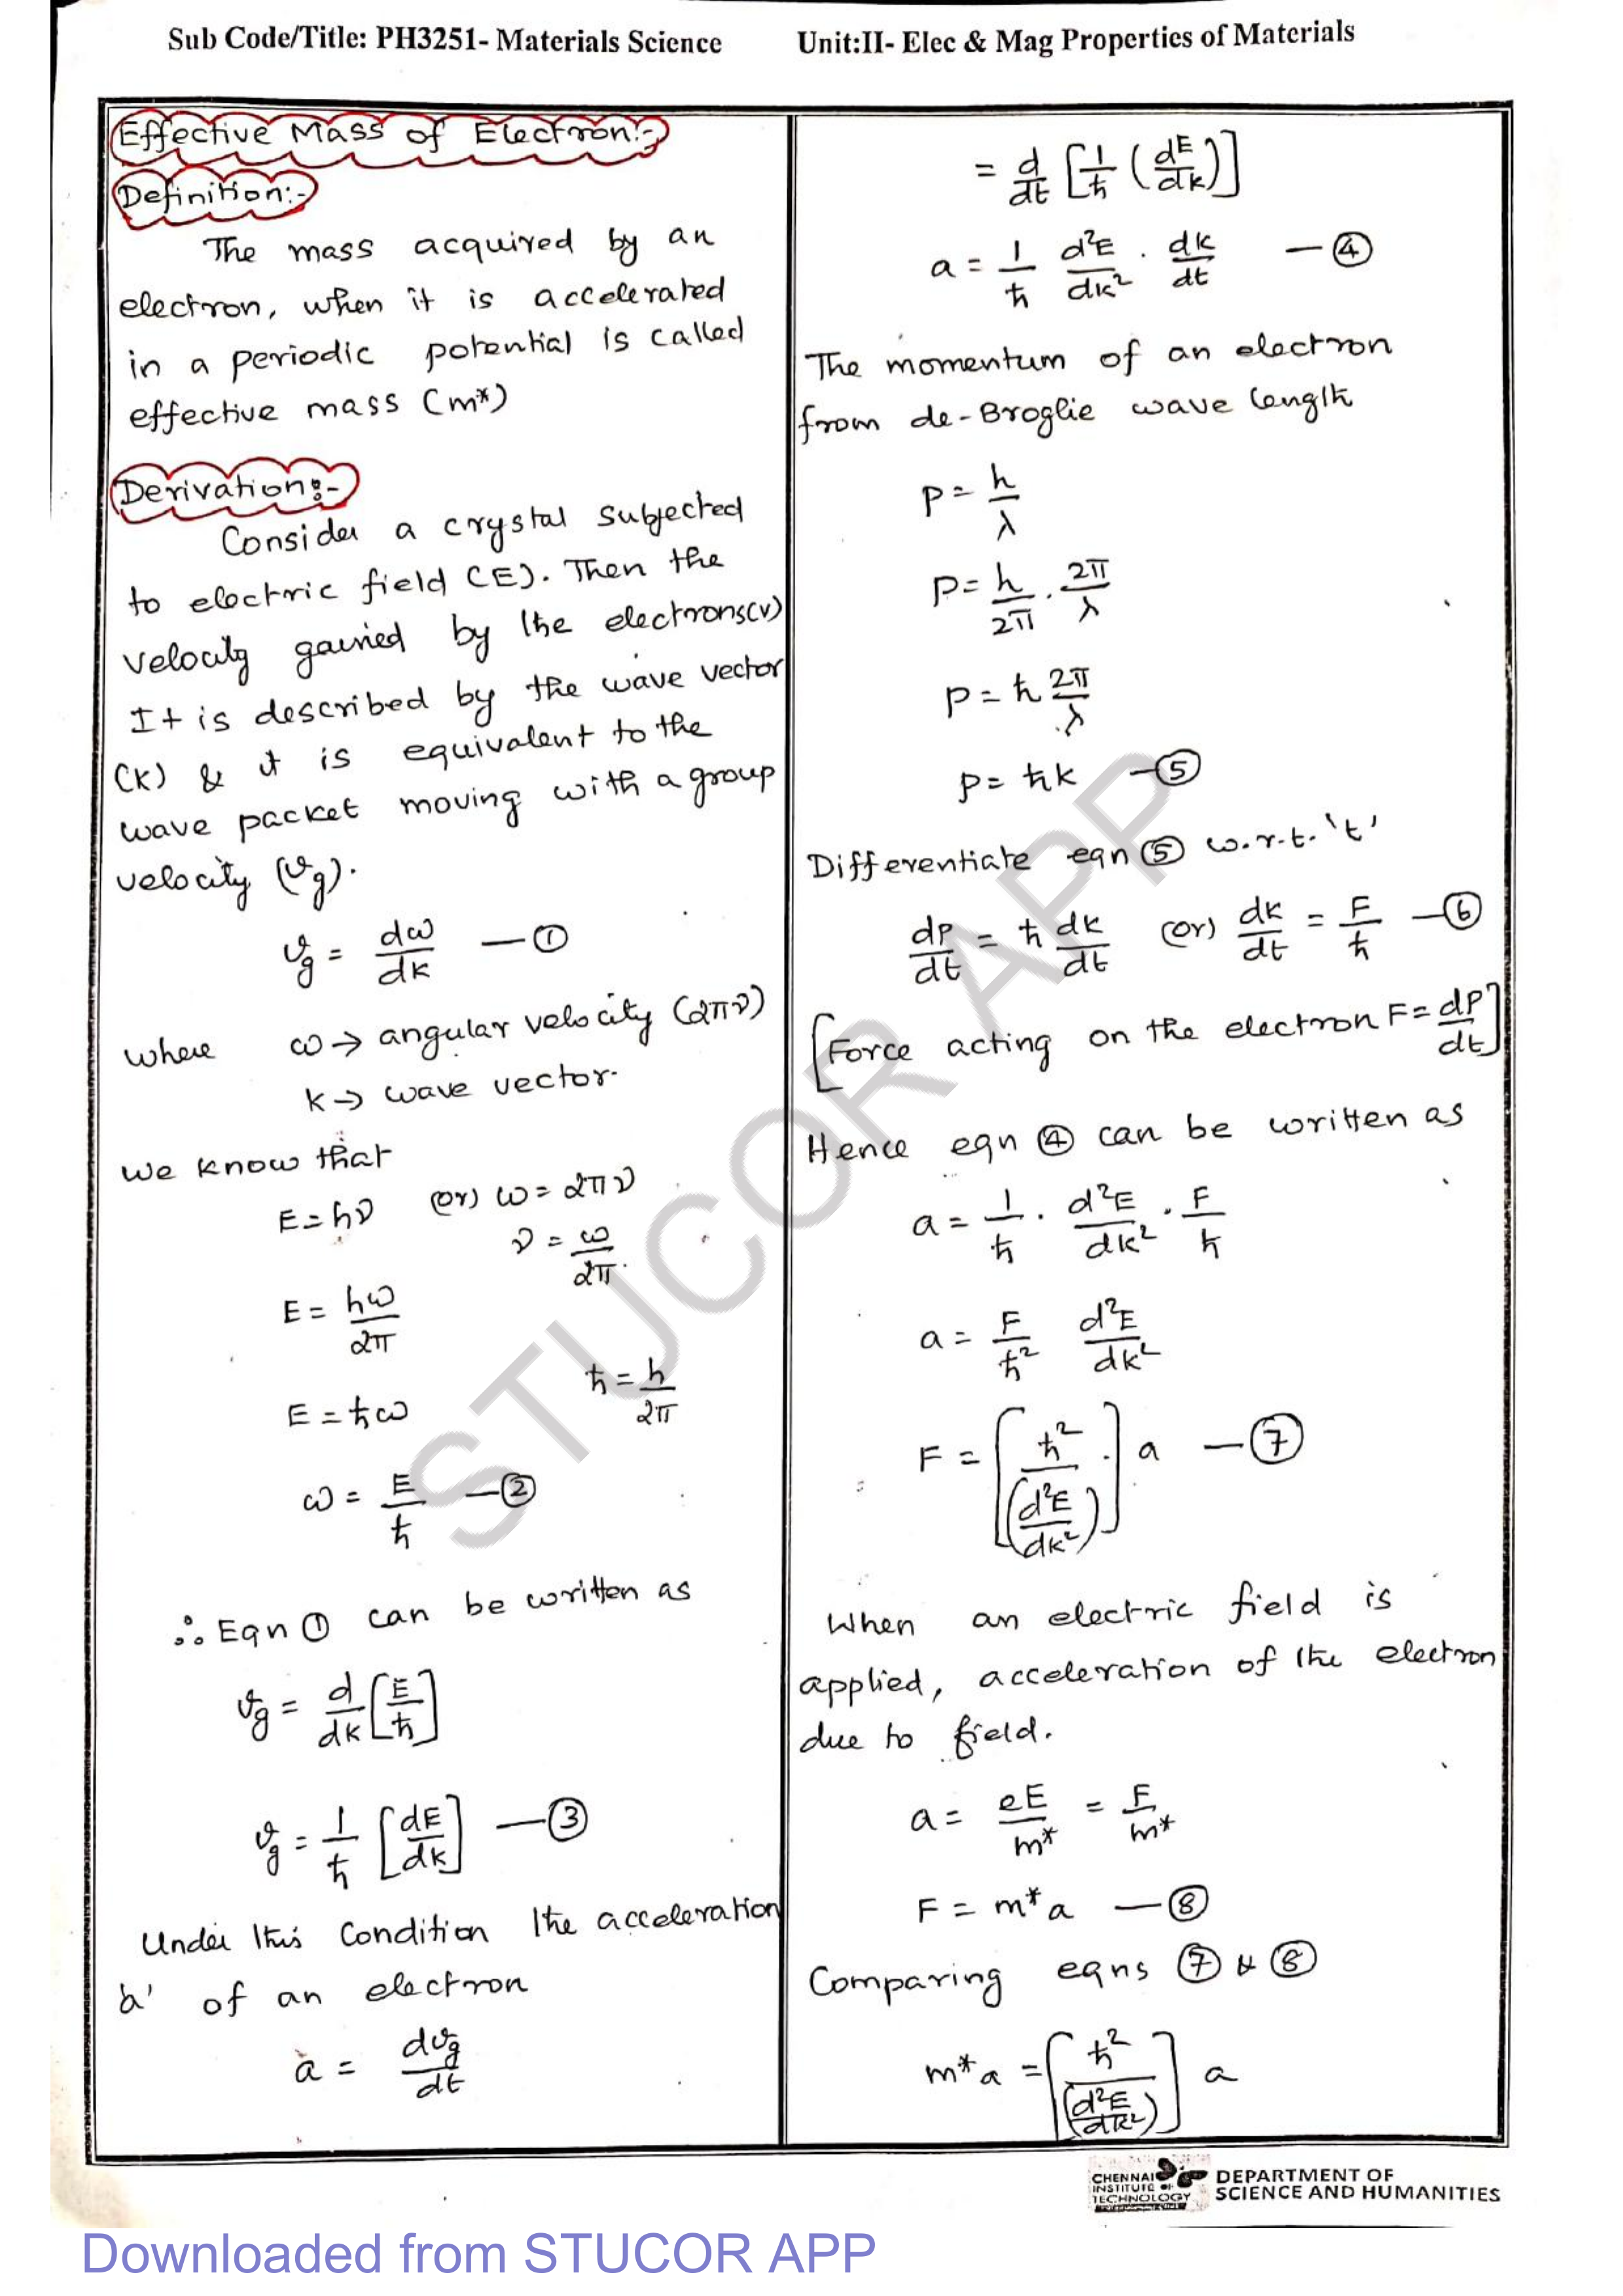 Sub Code/Title: PH3251- Materials Science Unit:II- Elec & Mag Properties of Materials
Effective Mass of Electron:-
Definition:-
The mass acquired by an
electron, when it is accelerated
in a periodic potential is called
effective mass (m*)
Derivation:-
Consider a crystal subjected
to electric field (E). Then the
velocity gained by the electrons(v)
It is described by the wave vector
(K) & it is equivalent to the
wave packet moving with a group
velocity (vg).
vg = dω/dk — ①
where ω → angular velocity (2πν)
k → wave vector.
we know that
E = hν (or) ω = 2πν
ν = ω/2π.
E = hω/2π
E = ħω ħ = h/2π
ω = E/ħ — ②
∴ Eqn ① can be written as
vg = d/dk [E/ħ]
vg = 1/ħ [dE/dk] — ③
Under this condition the acceleration
'a' of an electron
a = dvg/dt
= d/dt [1/ħ (dE/dk)]
a = 1/ħ d²E/dk² . dk/dt — ④
The momentum of an electron
from de-Broglie wave length
P = h/λ
P = h/2π . 2π/λ
P = ħ 2π/λ
P = ħk — ⑤
Differentiate eqn ⑤ w.r.t. 't'
dp/dt = ħ dk/dt (or) dk/dt = F/ħ — ⑥
[Force acting on the electron F = dP/dt]
Hence eqn ④ can be written as
a = 1/ħ . d²E/dk² . F/ħ
a = F/ħ² d²E/dk²
F = [ħ²/(d²E/dk²)] a — ⑦
When an electric field is
applied, acceleration of the electron
due to field.
a = eE/m* = F/m*
F = m*a — ⑧
Comparing eqns ⑦ & ⑧
m*a = [ħ²/(d²E/dk²)] a
CHENNAI
INSTITUTE OF
TECHNOLOGY
DEPARTMENT OF
SCIENCE AND HUMANITIES
STUCOR APP
Downloaded from STUCOR APP